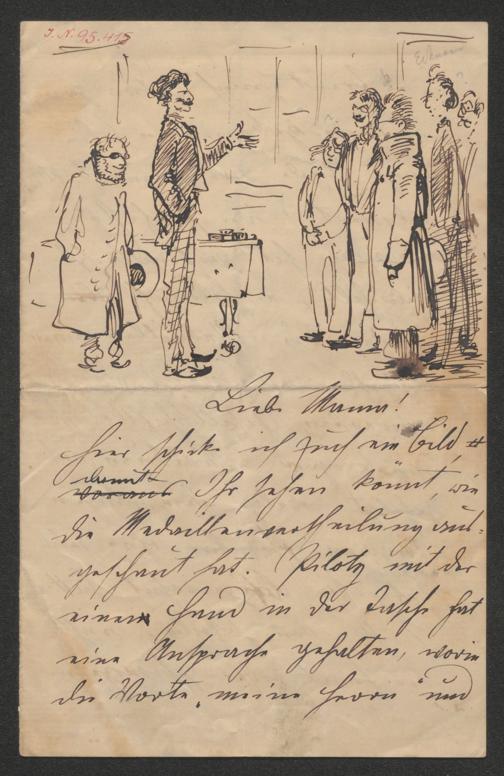 J. N. 95.415
Liebe Mama!
hier schicke ich Euch ein Bild,
damit
woraus Ihr sehen könnt, wie
die Medaillenvertheilung aus-
geschaut hat. Piloty mit der
einen Hand in der Tasche hat
eine Ansprache gehalten, worin
die Worte „meine Herrn" und